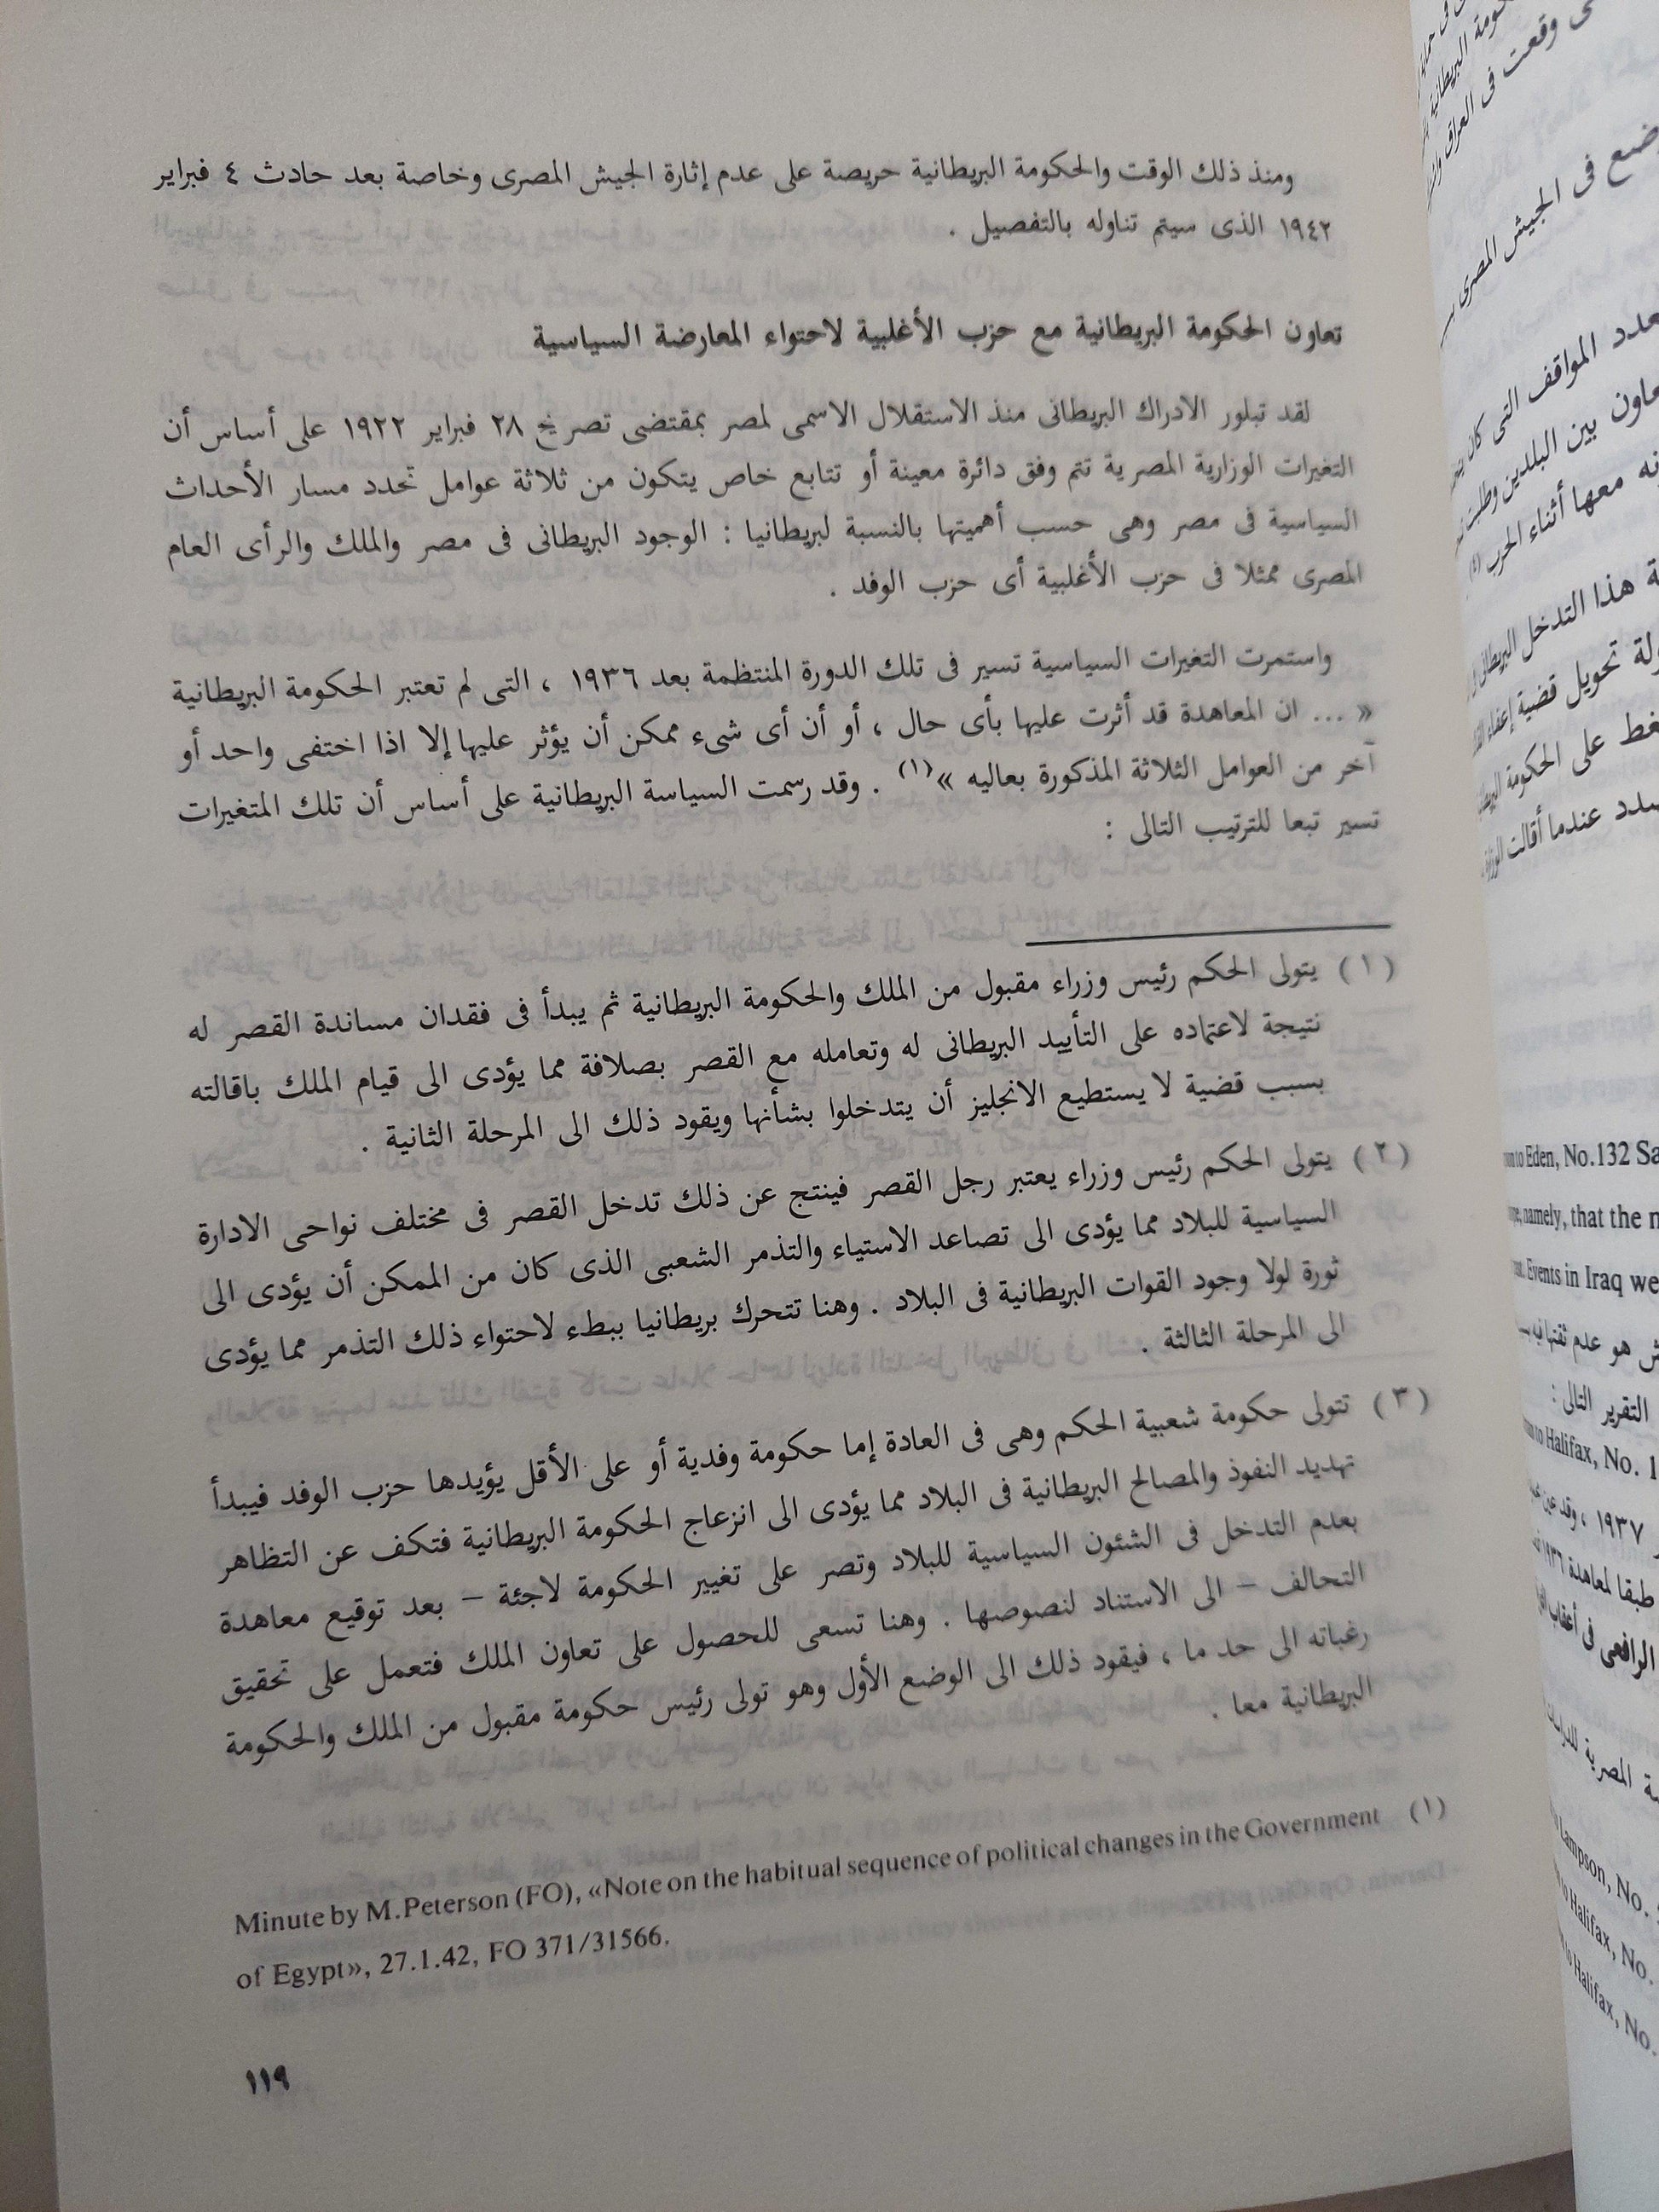 ومنذ ذلك الوقت والحكومة البريطانية حريصة على عدم إثارة الجيش المصرى وخاصة بعد حادث ٤ فبراير
١٩٤٢ الذى سيتم تناوله بالتفصيل .
تعاون الحكومة البريطانية مع حزب الأغلبية لاحتواء المعارضة السياسية
لقد تبلور الادراك البريطانى منذ الاستقلال الاسمى لمصر بمقتضى تصريح ٢٨ فبراير ١٩٢٢ على أساس أن
التغيرات الوزارية المصرية تتم وفق دائرة معينة أو تتابع خاص يتكون من ثلاثة عوامل تحدد مسار الأحداث
السياسية فى مصر وهى حسب أهميتها بالنسبة لبريطانيا : الوجود البريطانى فى مصر والملك والرأى العام
المصرى ممثلا فى حزب الأغلبية أى حزب الوفد .
واستمرت التغيرات السياسية تسير فى تلك الدورة المنتظمة بعد ١٩٣٦ ، التى لم تعتبر الحكومة البريطانية
« ... ان المعاهدة قد أثرت عليها بأى حال ، أو أن أى شىء ممكن أن يؤثر عليها إلا اذا اختفى واحد أو
آخر من العوامل الثلاثة المذكورة بعاليه »(١) . وقد رسمت السياسة البريطانية على أساس أن تلك المتغيرات
تسير تبعا للترتيب التالى :
(١) يتولى الحكم رئيس وزراء مقبول من الملك والحكومة البريطانية ثم يبدأ فى فقدان مساندة القصر له
نتيجة لاعتماده على التأييد البريطانى له وتعامله مع القصر بصلافة مما يؤدى الى قيام الملك باقالته
بسبب قضية لا يستطيع الانجليز أن يتدخلوا بشأنها ويقود ذلك الى المرحلة الثانية .
(٢) يتولى الحكم رئيس وزراء يعتبر رجل القصر فينتج عن ذلك تدخل القصر فى مختلف نواحى الادارة
السياسية للبلاد مما يؤدى الى تصاعد الاستياء والتذمر الشعبى الذى كان من الممكن أن يؤدى الى
ثورة لولا وجود القوات البريطانية فى البلاد . وهنا تتحرك بريطانيا ببطء لاحتواء ذلك التذمر مما يؤدى
الى المرحلة الثالثة .
(٣) تتولى حكومة شعبية الحكم وهى فى العادة إما حكومة وفدية أو على الأقل يؤيدها حزب الوفد فيبدأ
تهديد النفوذ والمصالح البريطانية فى البلاد مما يؤدى الى انزعاج الحكومة البريطانية فتكف عن التظاهر
بعدم التدخل فى الشئون السياسية للبلاد وتصر على تغيير الحكومة لاجئة – بعد توقيع معاهدة
التحالف – الى الاستناد لنصوصها . وهنا تسعى للحصول على تعاون الملك فتعمل على تحقيق
رغباته الى حد ما ، فيقود ذلك الى الوضع الأول وهو تولى رئيس حكومة مقبول من الملك والحكومة
البريطانية معا .
(١) Minute by M.Peterson (FO), «Note on the habitual sequence of political changes in the Government
of Egypt», 27.1.42, FO 371/31566.
١١٩
وقعت فى العراق
ضع فى الجيش المصرى
المواقف التى كان
بين البلدين
معها أثناء الحرب (٤)
هذا التدخل البريطانى
تحويل قضية إعفاء
على الحكومة
عندما أقالت
to Eden, No.132
namely, that the
Events in Iraq
هو عدم ثقتها
التقرير التالى :
to Halifax, No. 1
١٩٣٧ ، وقد
طبقا لمعاهدة ١٩٣٦
الرافعى فى أعقاب
المصرية
Lampson, No.
to Halifax, No.
to Halifax, No.